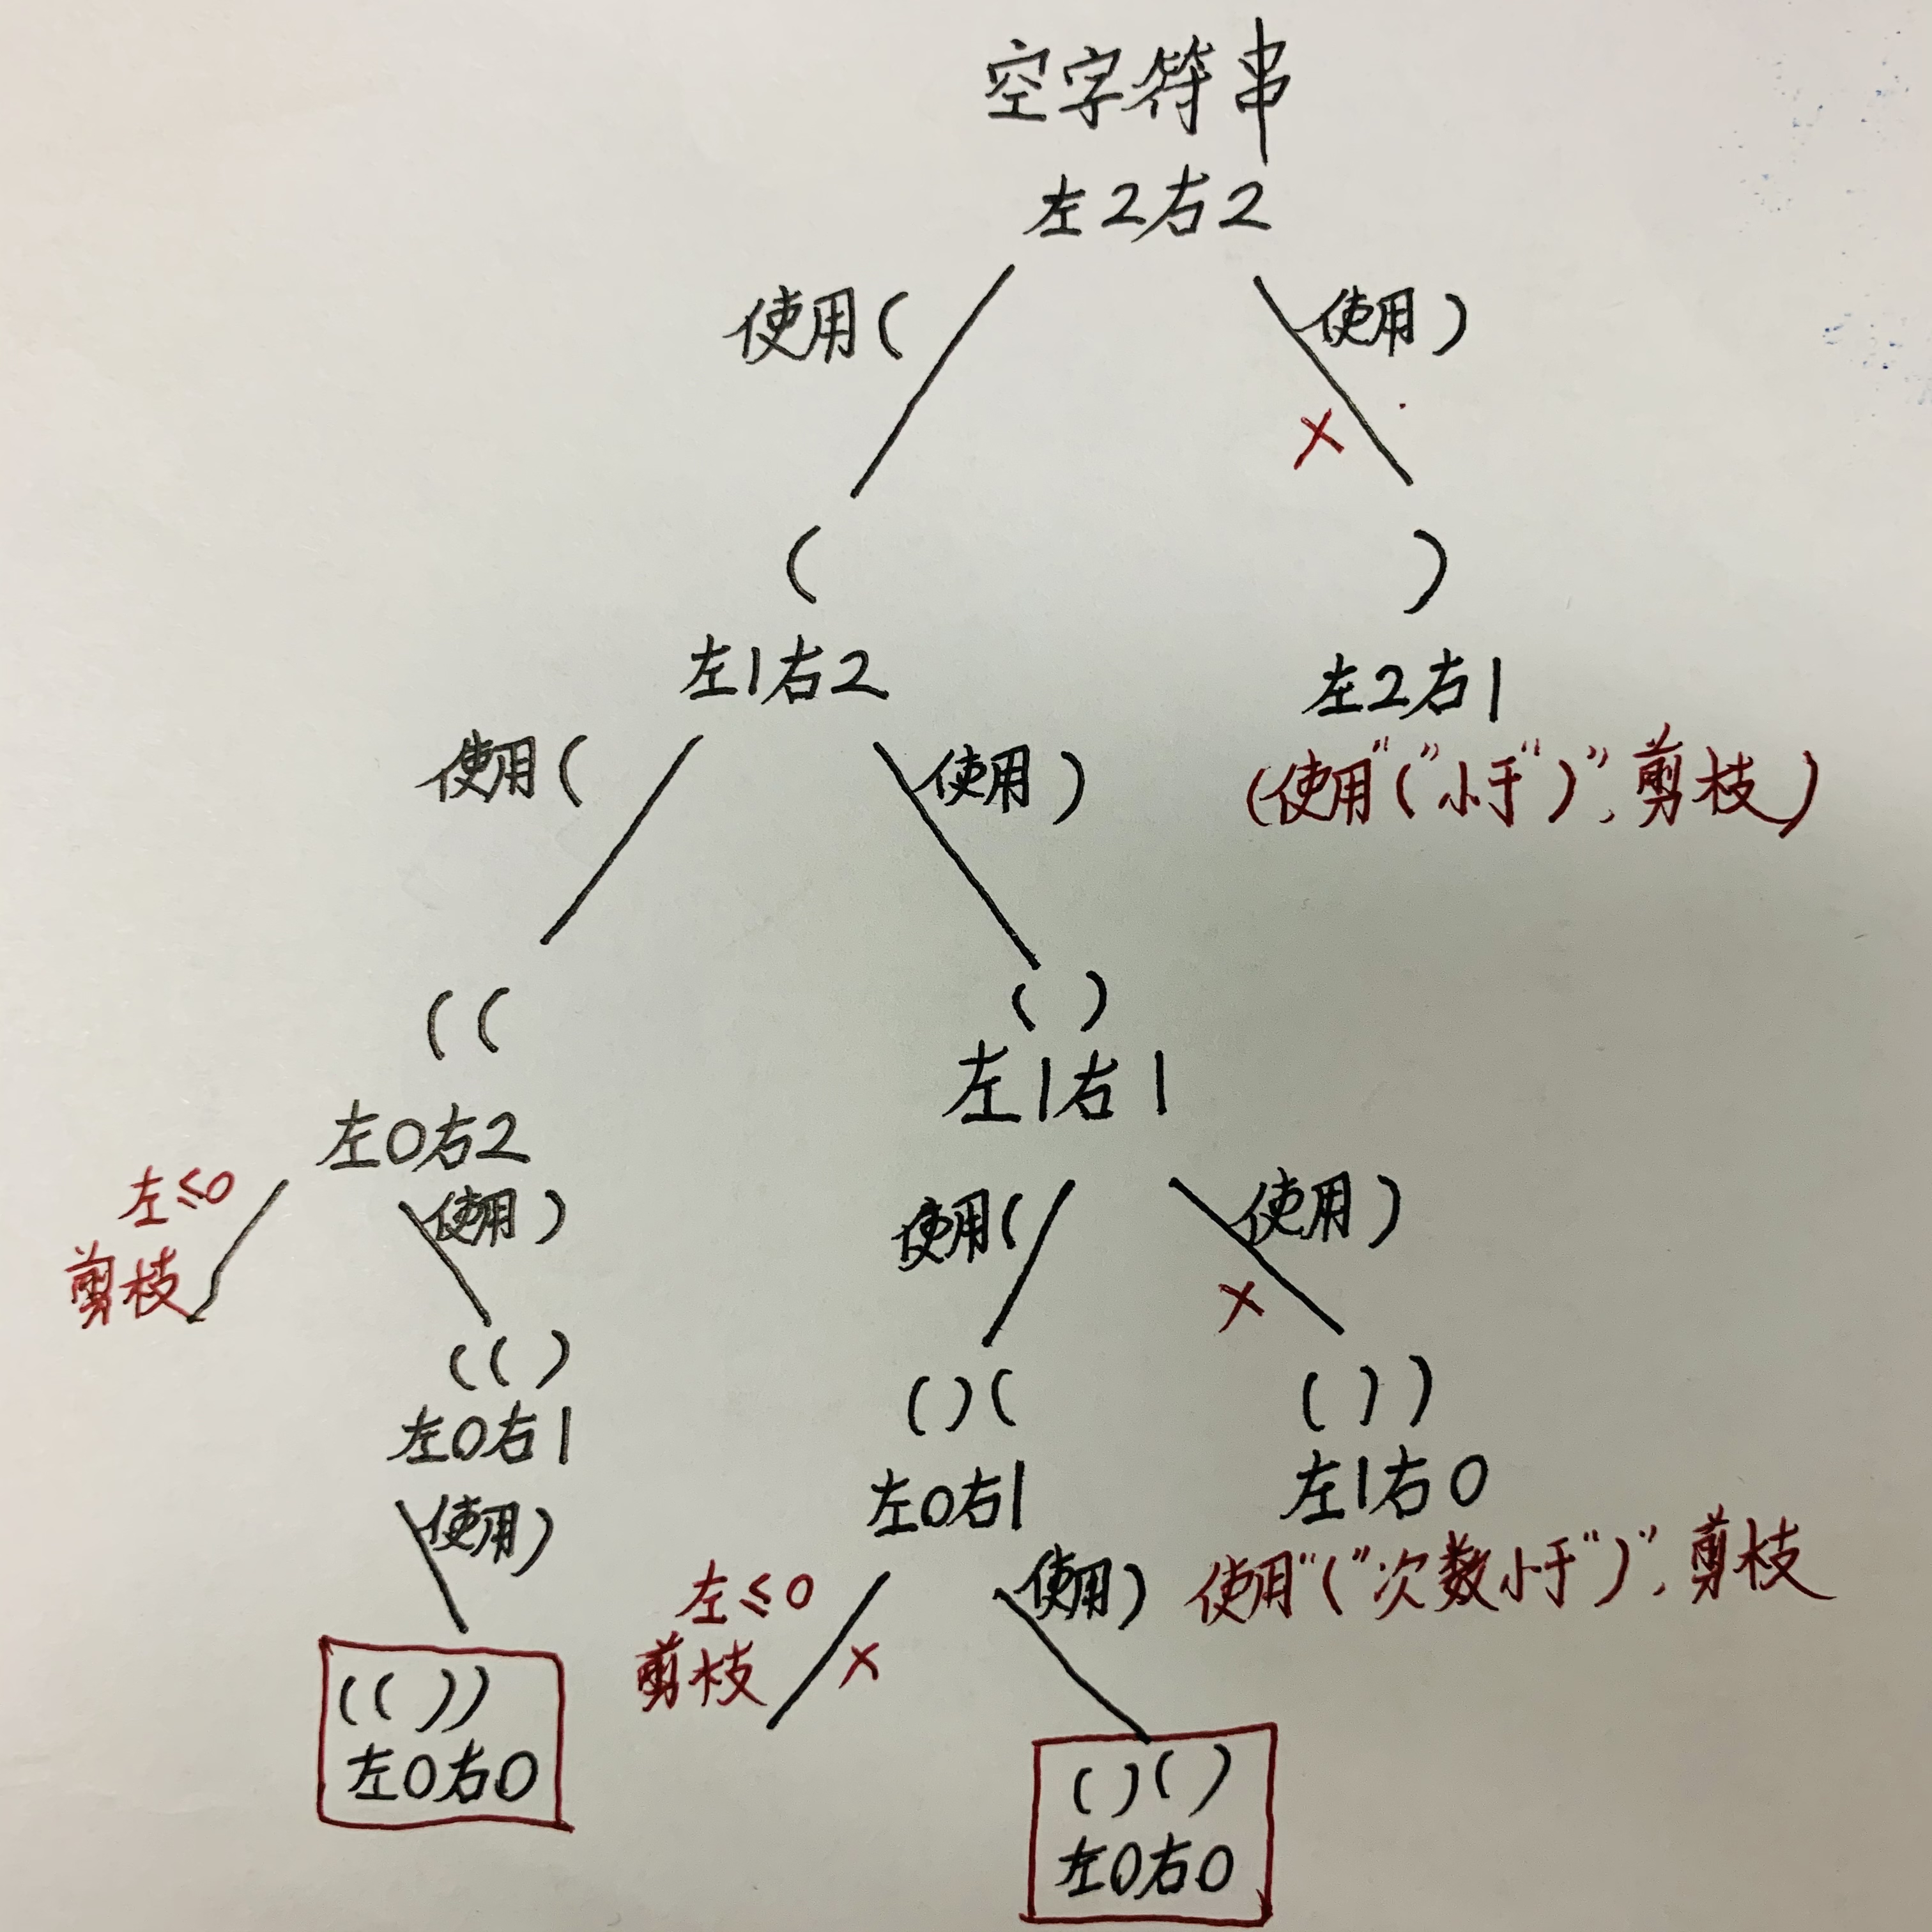 空字符串
左2右2
使用(
使用)
(
)
左1右2
左2右1
(使用"("小于")",剪枝)
使用(
使用)
((
()
左0右2
左1右1
左≤0
剪枝
使用)
使用(
使用)
(()
()(
())
左0右1
左0右1
左1右0
使用"("次数小于")",剪枝
使用)
左≤0
剪枝
使用)
(())
左0右0
()()
左0右0